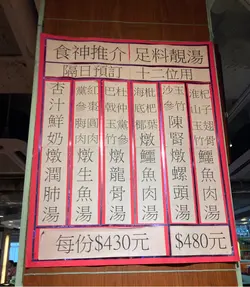 食神推介 足料靚湯
隔日預訂 十二位用
淮山杞子玉竹燉鱷魚肉湯
沙參玉竹陳腎燉螺頭湯
海底椰枇杷葉燉鱷魚肉湯
巴戟杜仲黨參燉龍骨湯
黨參紅棗圓肉燉生魚湯
杏汁鮮奶燉潤肺湯
每份$430元
$480元